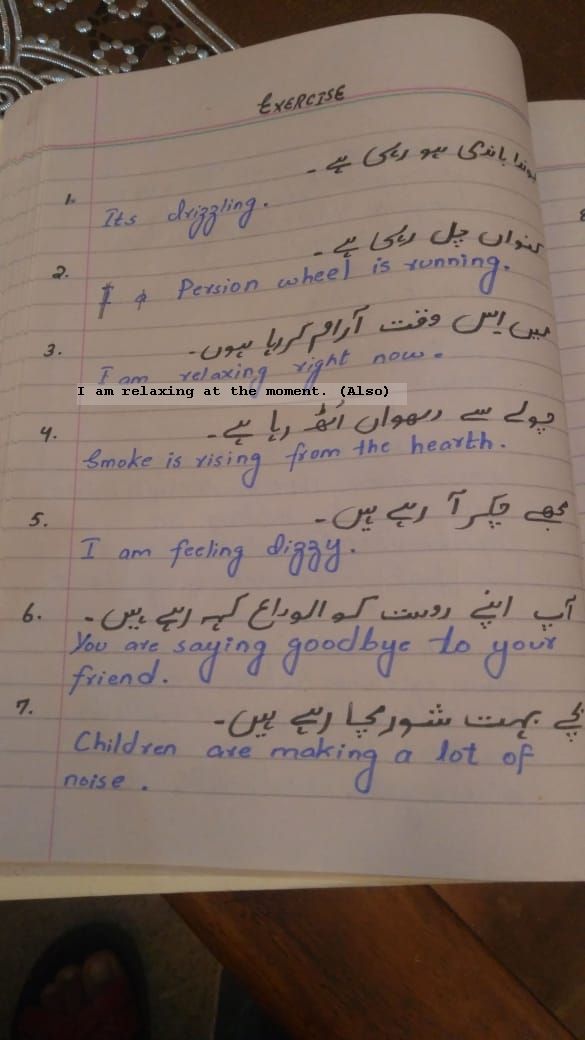 EXERCISE
بوندا باندی ہو رہی ہے ۔
1.
Its drizzling.
کنواں چل رہی ہے ۔
2.
Persion wheel is running.
میں اس وقت آرام کر رہا ہوں ۔
3.
I am relaxing right now.
I am relaxing at the moment. (Also)
چولے سے دھواں اُٹھ رہا ہے ۔
4.
Smoke is rising from the hearth.
مجھے چکر آ رہے ہیں ۔
5.
I am feeling dizzy.
آپ اپنے دوست کو الوداع کہہ رہے ہیں ۔
6.
You are saying goodbye to your
friend.
بچے بہت شور مچا رہے ہیں ۔
7.
Children are making a lot of
noise.